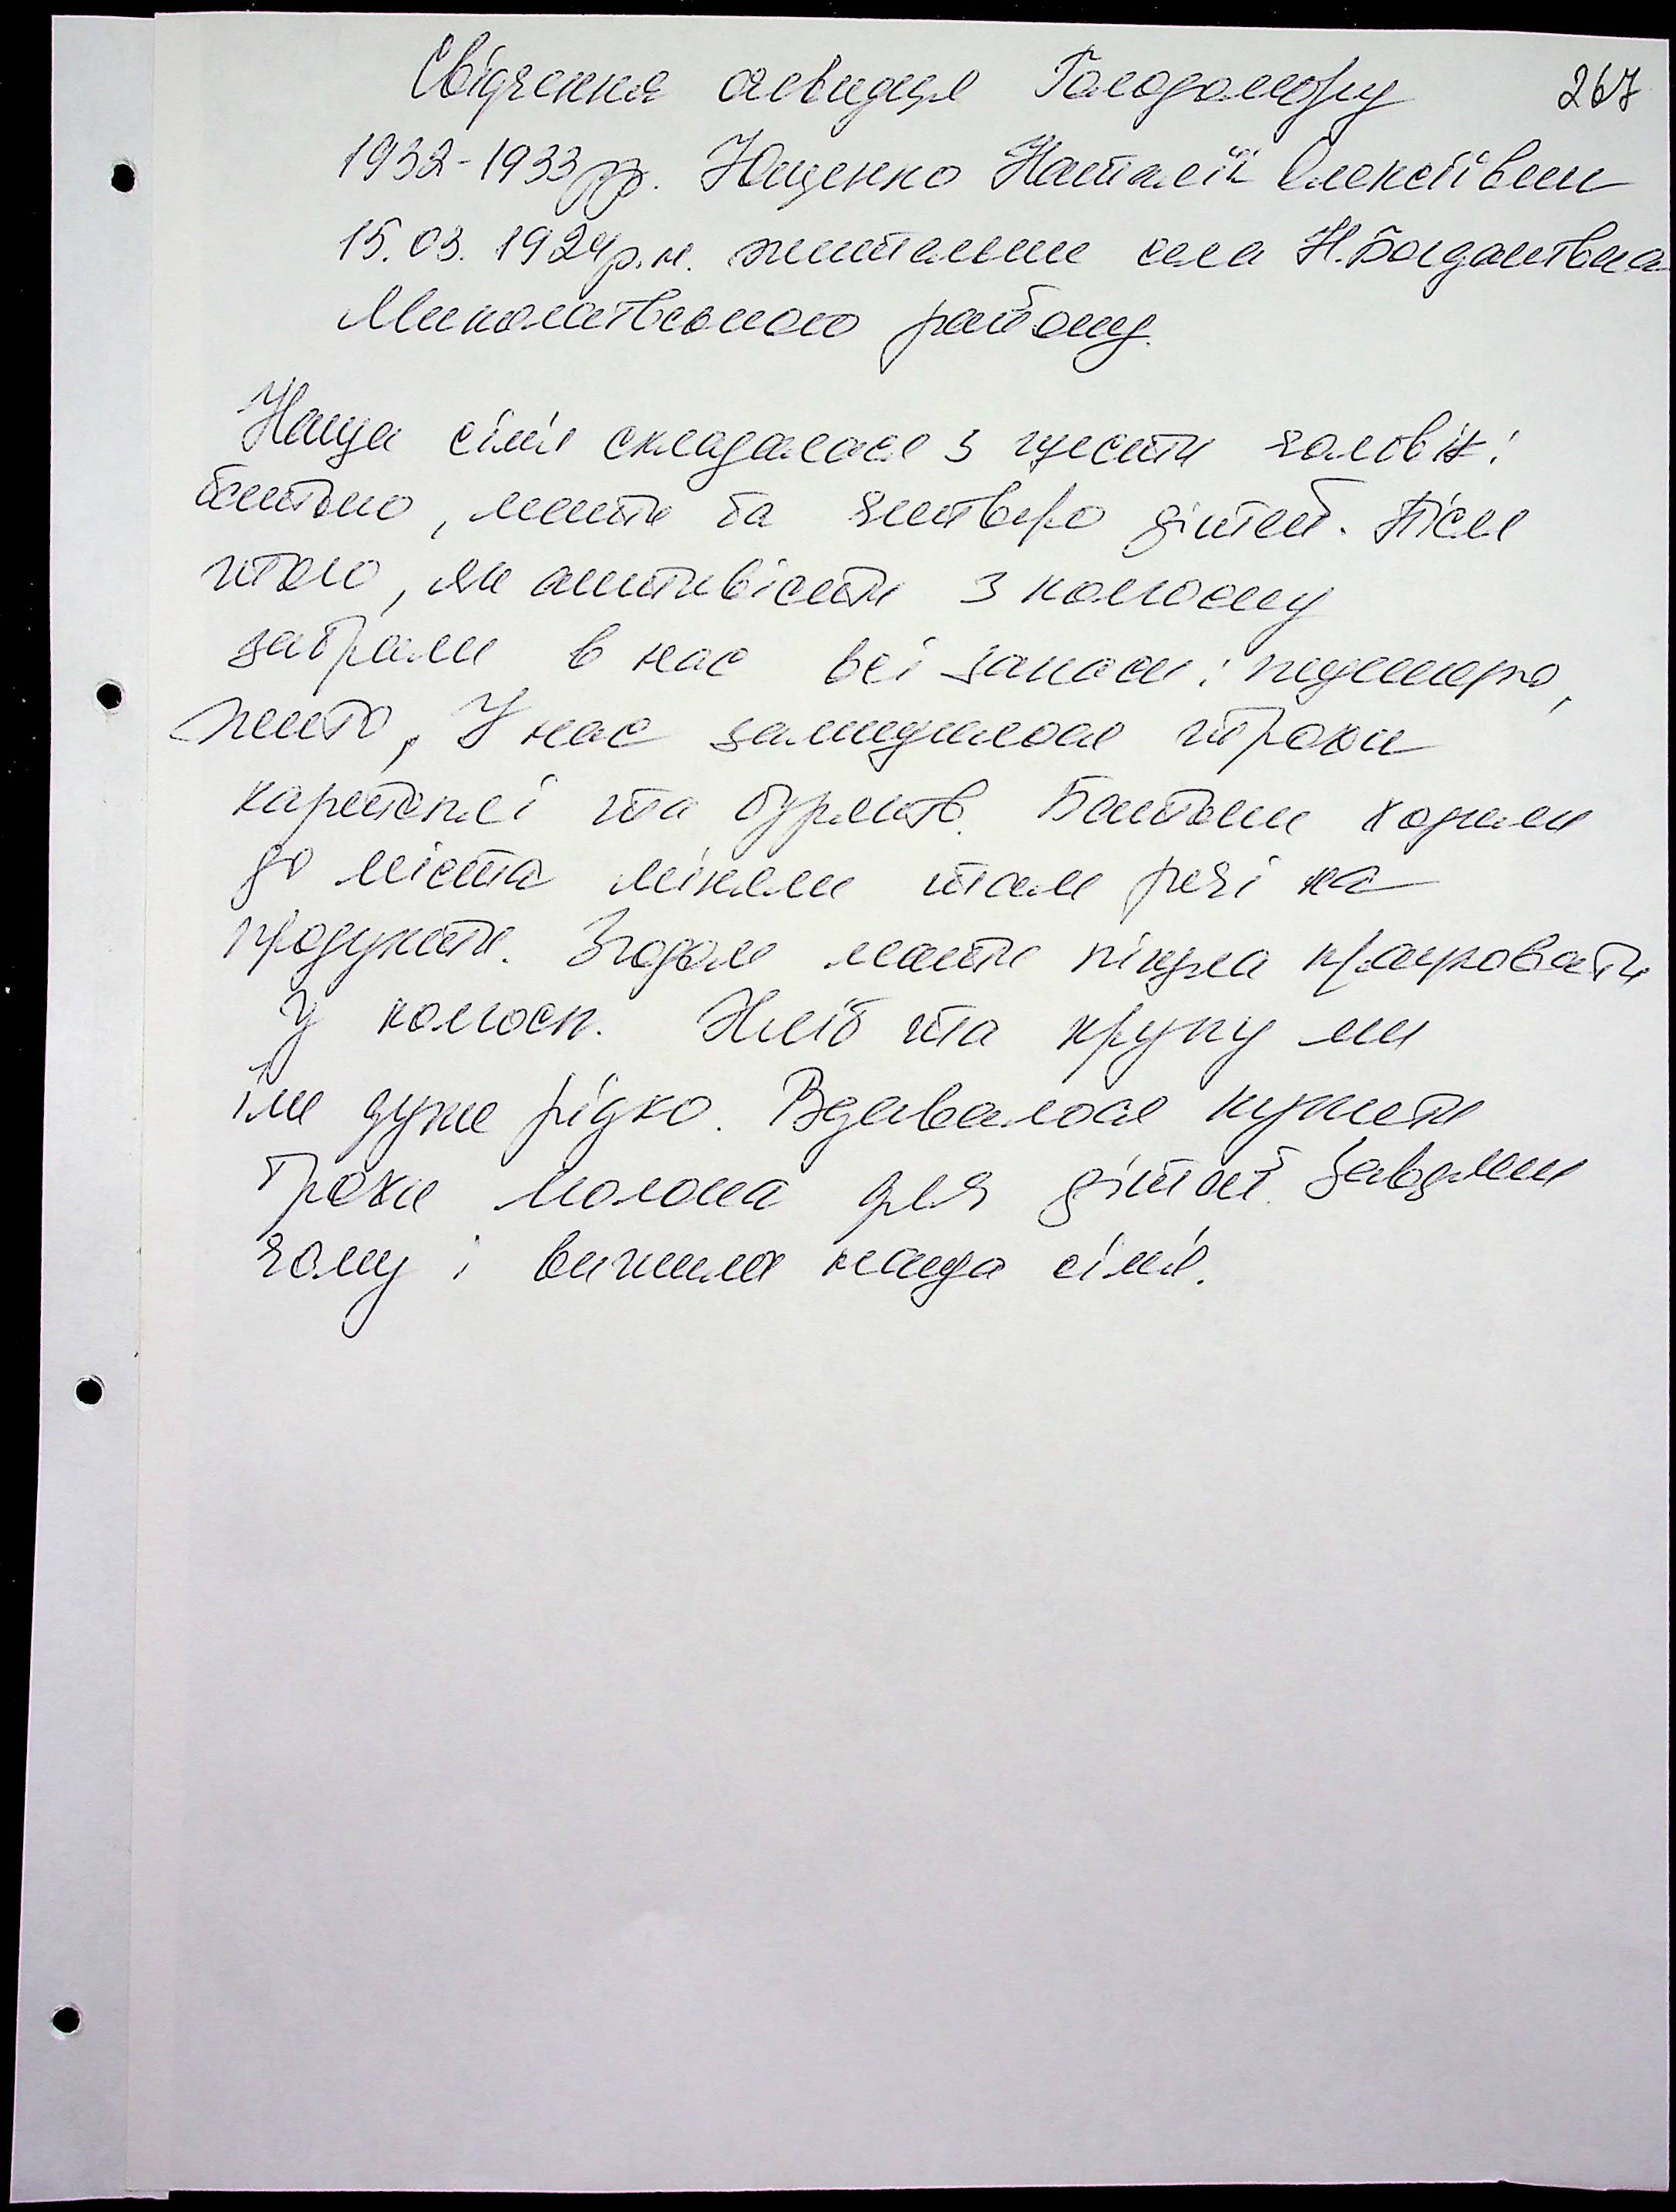 Свідчення очевидця Голодомору 267
1932-1933 рр. Ющенко Наталії Олексіївни
15.03.1924 р.н. жительки села Н.Богданівка
Миколаївського району.
Наша сім'я складалася з шести чоловік:
батько, мати та четверо дітей. Після
того, як активісти з колгоспу
забрали в нас всі запаси: пшеницю,
жито, У нас залишилося трохи
картоплі та буряків. Батьки ходили
до міста міняли там речі на
продукти. Згодом мати пішла працювати
у колгосп. Хліб та крупу ми
їли дуже рідко. Вдавалося купити
трохи молока для дітей. Завдяки
чому і вижила наша сім'я.